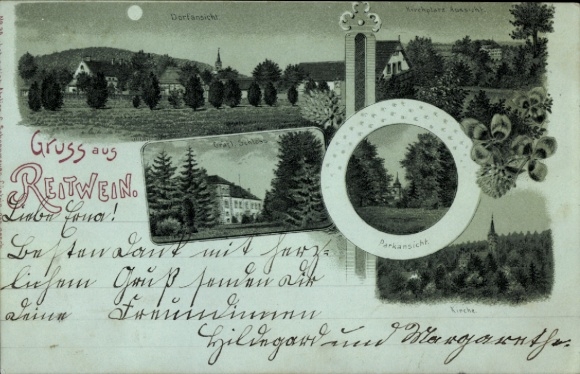 Dorfansicht.
Kirchplatz Aussicht.
Gräfl. Schloss.
Gruss aus
REITWEIN.
Parkansicht.
Kirche.
Liebe Erna!
Besten Dank mit herz-
lichem Gruß senden Dir
deine Freundinnen
Hildegard und Margarethe.